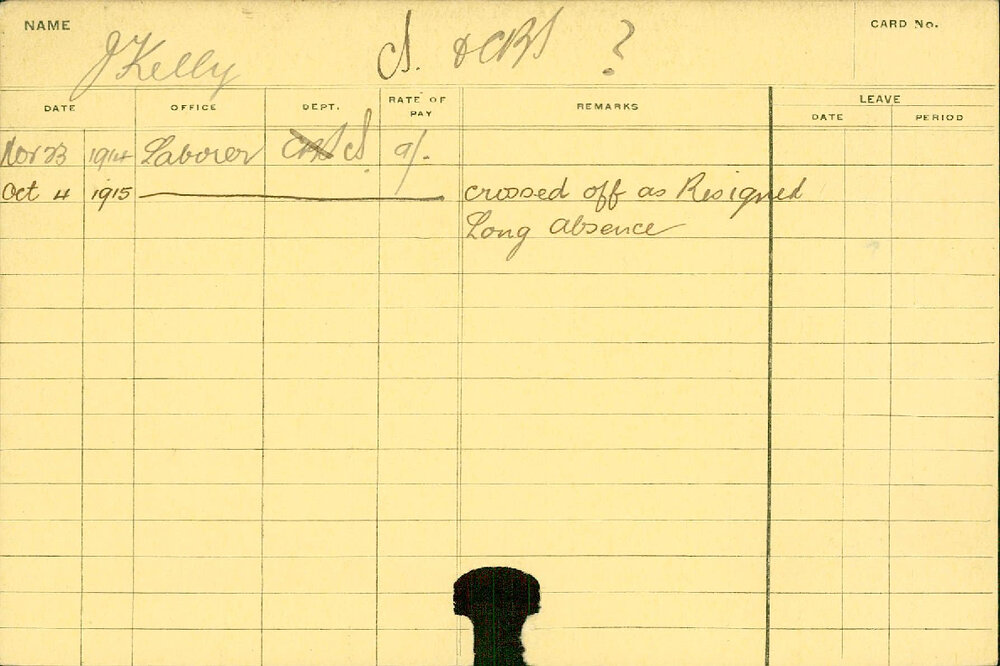 NAME J Kelly CS. & CBS ? CARD No.
DATE OFFICE DEPT. RATE OF PAY REMARKS LEAVE
DATE PERIOD
Nov 23 1914 Laborer CBS CS 9/-
Oct 4 1915 crossed off as Resigned
Long absence